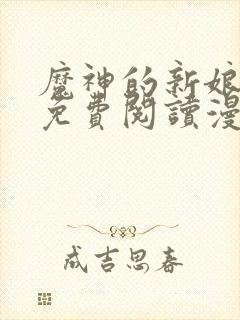 魔神的新娘
免費閱讀漫
成吉思春